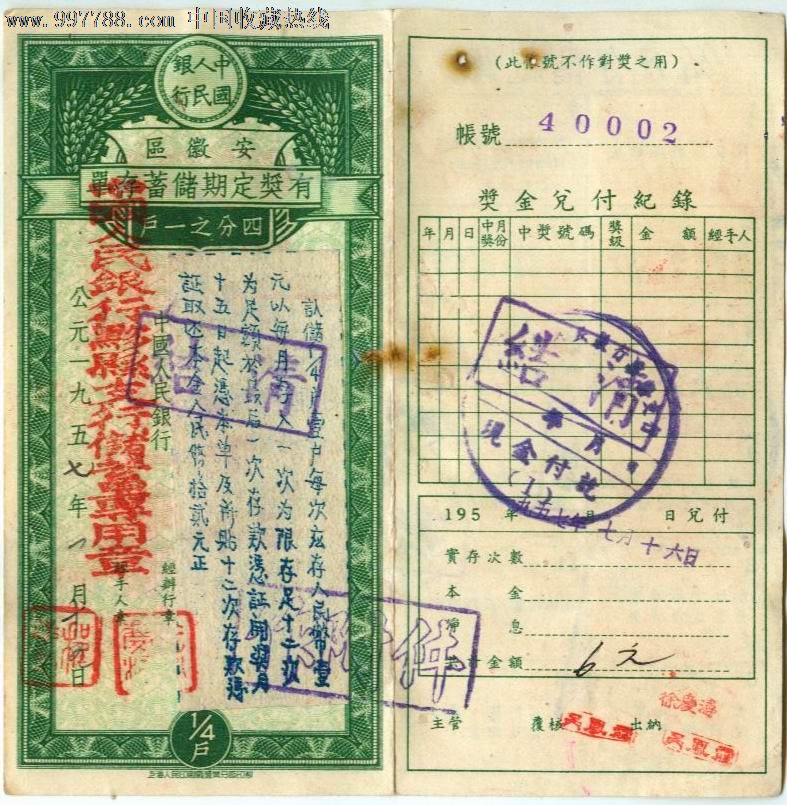 www.997788.com 中国收藏热线
中國人民銀行
安徽區
有獎定期儲蓄存單
四分之一戶
認儲1/4戶壹戶每次兹存人民幣壹
元以每月存入一次为限存足十二次
为足額於最后一次存款憑証開獎月
十五日起憑本單及所貼十二次存款憑
証取还本金人民幣拾貳元正
中國人民銀行
經辦行章
經手人章
公元一九五七年一月
中國人民銀行縣支行儲蓄專用章
結清
附件
1/4
戶
(此帳號不作對獎之用)
帳號 40002
獎金兌付紀錄
年 月 日 中獎月份 中獎號碼 獎級 金額 經手人
結清
年 月 日
現金付訖
(1)
一九五七年七月十六日
195 年 月 日兌付
實存次數
本金
利息
共計金額 6元
主管 覆核 出納
徐慶海